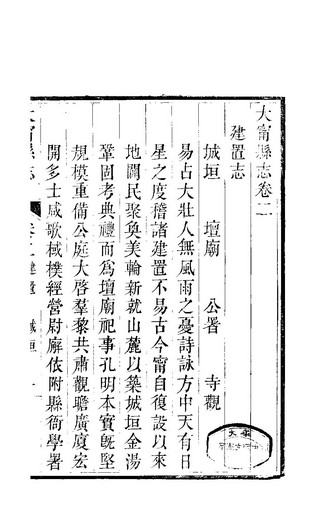 大甯縣志卷二
建置志
城垣　壇廟　公署　寺觀
易占大壯人無風雨之憂詩詠方中天有日
星之度稽諸建置不易古今甯自復設以來
地闢民聚奐美輪新就山麓以築城垣金湯
鞏固考典禮而為壇廟祀事孔明本實旣堅
規模重備公庭大啓羣黎共肅觀瞻廣廈宏
開多士咸歌棫樸經營尉廨依附縣衙學署
大甯縣志　卷二建置　城垣　一